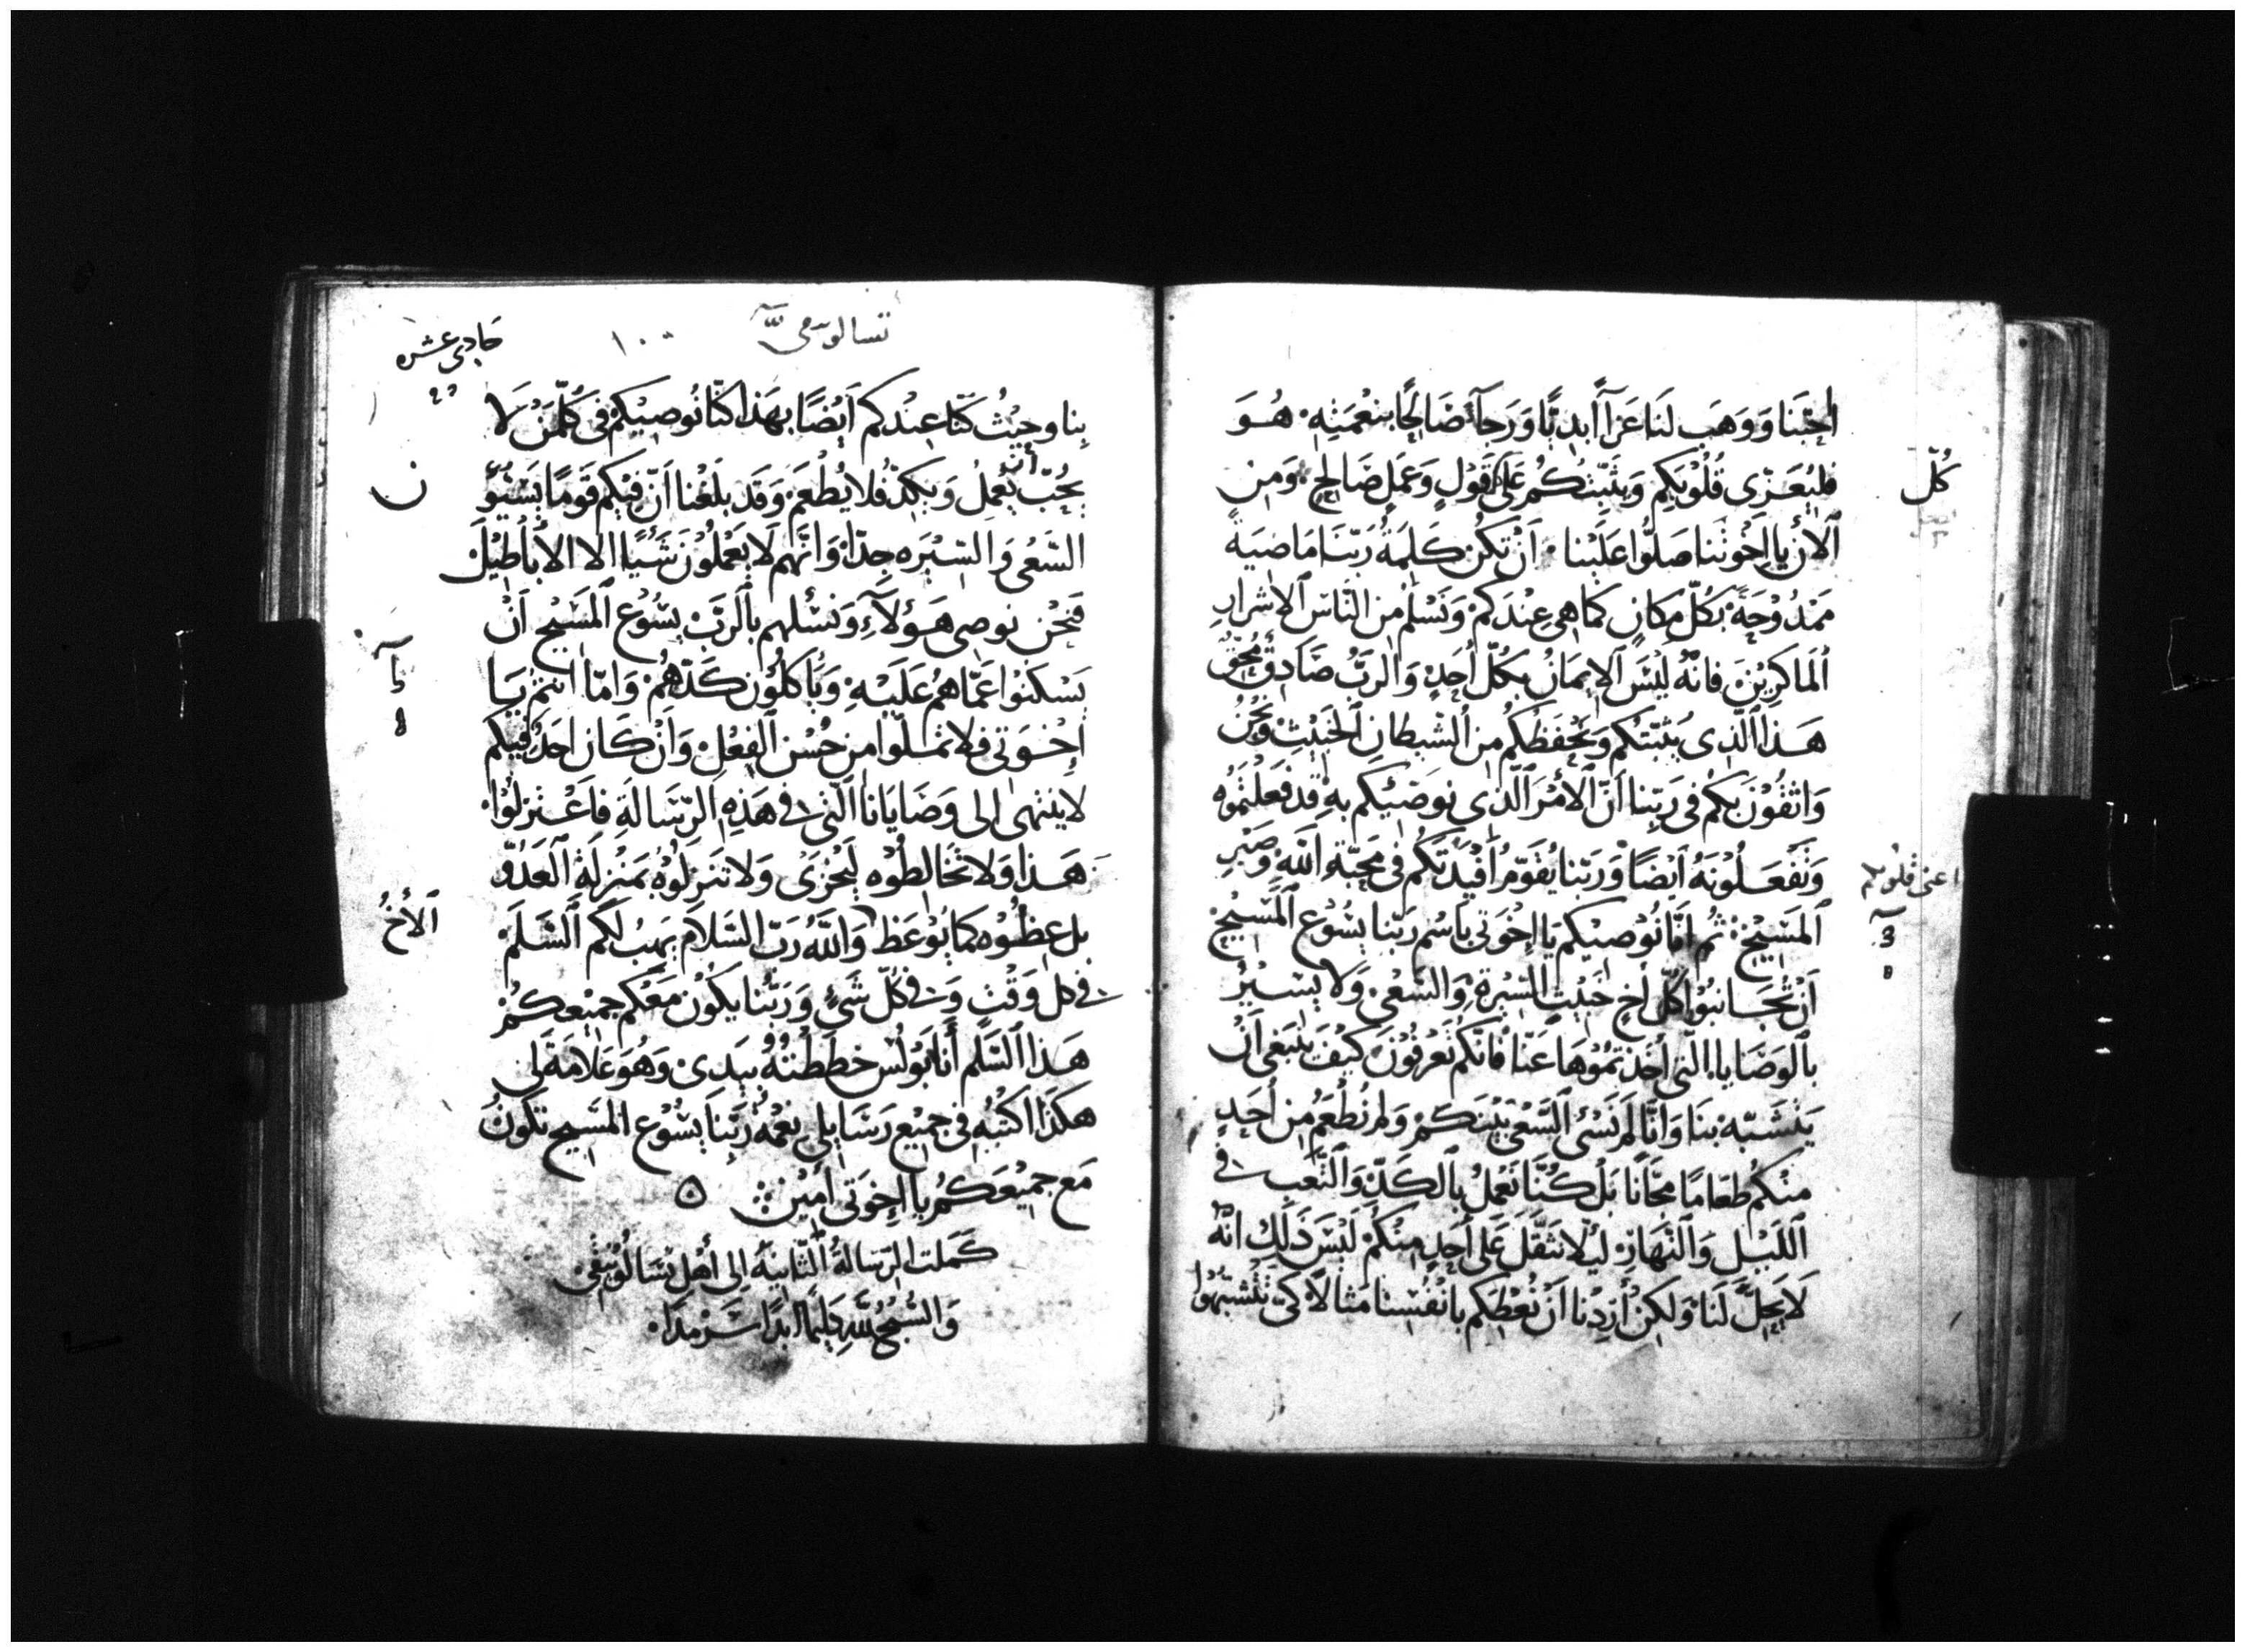 احبّنا وَوَهَب لَنا عَزآً أبديًّا وَرَجآءً صَالحًا بنعْمَتِهِ هُوَ
فليُعَزّى قُلُوْبَكم وَيثَبّتُكُم عَلى قَوْلٍ وَعَمَلٍ صَالح وَمن
كلّ
ٱلآنْ يا اِخْوتَنا صَلّوا عَلَيْنا اَنْ تكُنْ كَلِمَةُ رَبّنا مَاضيَةً
مَمْدُوْحَةً بكُلّ مكَانٍ كما هى عِنْدَكمْ وَنَسْلَمْ من النّاس ٱلاشرارِ
ٱلمَاكريْنَ فانّهُ ليْسَ ٱلايمَانُ بكُلّ أحَدٍ وَالرَبُّ صَادِقٌ مُحِقّ
هَذا الّذى يُثبّتكُم وَيَحْفَظُكُم من الشّيطانِ الخَبيْثِ وَنَحْنُ
وَاثقُوْنَ بكم فى رَبّنا انّ ٱلأمْرَ الّذى نوصّيكم بهِ قد فعَلْتمُوْه
وَتَفْعَلُونَهُ اَيْضًا وَرَبّنا يُقَوّمُ اَفْئِدَتكُم فى مَحَبّةِ اللّه وَصَبْرِ
اعنى قلوبكم
المَسِيْح ثم انّا نُوْصيْكم يَا اخْوَتى باسْم رَبّنا يسُوْع المَسِيْحِ
اَنْ تُجَانبُوْا كُلّ أخٍ خبيْثِ السّيْرةِ وَالسّعْى وَلا يسِيْرُ
بالوَصَايا الّتى أخَذتمُوْهَا عَنّا فانّكم تَعْرِفُوْنَ كيْفَ يَنْبَغى اَنْ
يَتَشَبّهَ بنَا وَانّا لمْ نَسْئ السّعْىَ بَيْنَكمْ وَلم نُطْعَمْ من أحَدٍ
منْكُمْ طَعامًا مجّانًا بَلْ كُنّا نَعْمَلُ بالكَدّ وَالتّعَب فى
اللّيْل وَالنّهَارِ ليْلا نَثقّلَ عَلى أحَدٍ منْكُمْ لَيْسَ ذَلكَ انّهُ
لا يَحِلّ لَنا وَلكنْ أردْنا اَنْ نُعْطيَكم بانْفُسِنا مَثالاً كى تَتَشبّهُوْا
حادى عشره
تسالونيقى
١٠٠
بنا وحَيْثُ كنّا عنْدَكم اَيْضًا بهَذا كنّا نُوصيْكم فى كلّ مَنْ لا
يُحبّ أن يَعْملُ وَيكدّ فلا يُطْعَمْ وَقَد بلَغْنا اَنّ فيكم قَومًا يُسيئو
السّعْى وَالسّيْرَه جدّا وَانّهم لا يَعْملُوْنَ شَيْئًا الا الاباطيْل
فَنحْن نوصى هَؤلآءِ وَنسْئلهم بالرَبّ يسُوْع المَسِيْح اَنْ
يَسْكتوا عَمّا هُمْ عَلَيْهِ وَيأكلُوْن كَدّهُمْ وَامّا انتم يَا
اِخْوَتى فلا تملّوا من حُسْن الفِعْلِ وَانْ كَان احَدٌ فيكم
لا ينْتهى الى وَصَايَانا الّتى فى هَذِهِ الرّسَالَةِ فاعْتزلُوْا
هَذا وَلا تخَالطُوْه ليَخْزَى وَلا تنزلُوْهُ بمَنْزلَةِ العَدُوّ
بل عِظُوْه كما يُوْعَظُ وَاللّهُ رَبّ السّلام يَهَبُ لكم السّلَمَ
ٱلأخُ
فى كل وَقْت وَفى كُلّ شَئٍ وَرَبّنا يَكُوْنُ مَعَكُم جميْعكُمْ
هَذا السّلَم أنا بَوْلُس خَطَطْتُهُ بيَدىْ وَهُوَ عَلامَة لى
هكَذا اكتُبُه فى جميْع رَسَايلى نِعْمَةُ رَبّنا يَسُوْع المَسيح تكونُ
مَع جميْعكُم يا اخوَتى أميْن
كملت الرّسَالةُ الثّانيَةُ الى أهْل تسَالُوْنيْقى
وَالسُّبْحُ للّه دَايمًا ابدًا سَرْمدًا